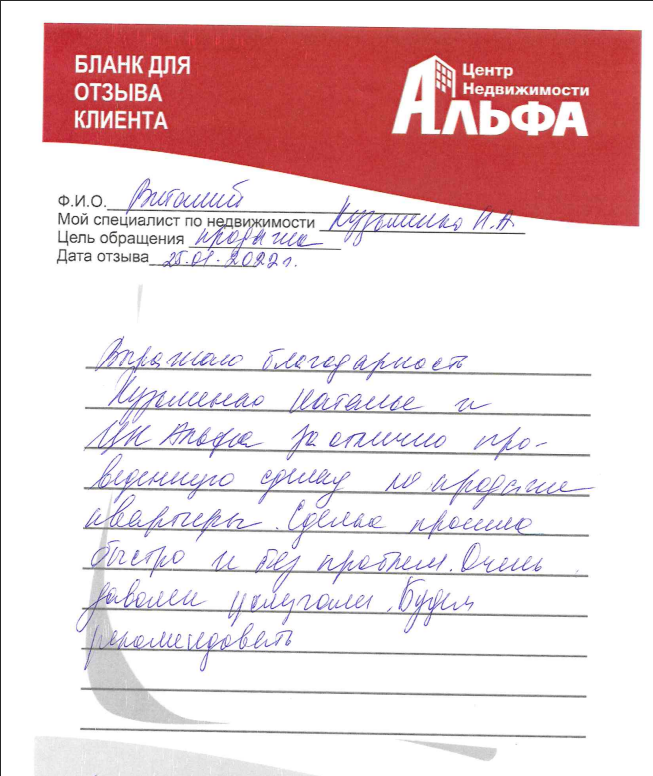 БЛАНК ДЛЯ
ОТЗЫВА
КЛИЕНТА
Центр
Недвижимости
АЛЬФА
Ф.И.О. Виталий
Мой специалист по недвижимости Кузьменко Н.А
Цель обращения продажа
Дата отзыва 25.01.2022г.
Выражаю благодарность
Кузьменко Наталье и
ЦН Альфа за отлично про-
веденную сделку по продаже
квартиры. Сделка прошла
быстро и без проблем. Очень
даволен услугами. Будем
рекомендовать